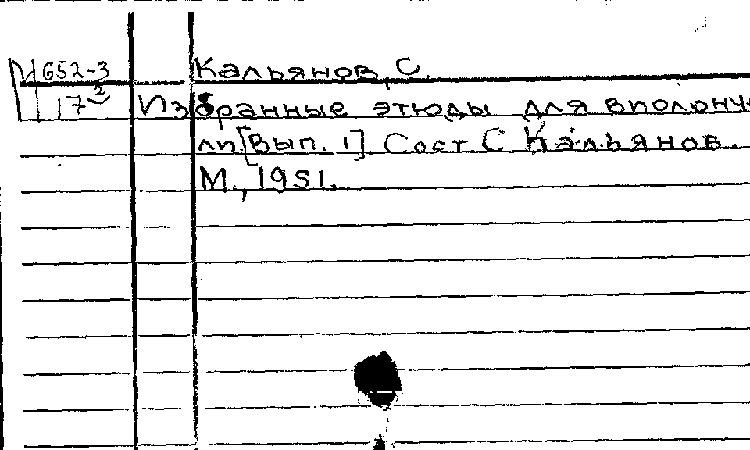 М 652-3 Кальянов, С.
17² Избранные этюды для виолонче
ли [Вып. 1] Сост С Кальянов.
М., 1951.